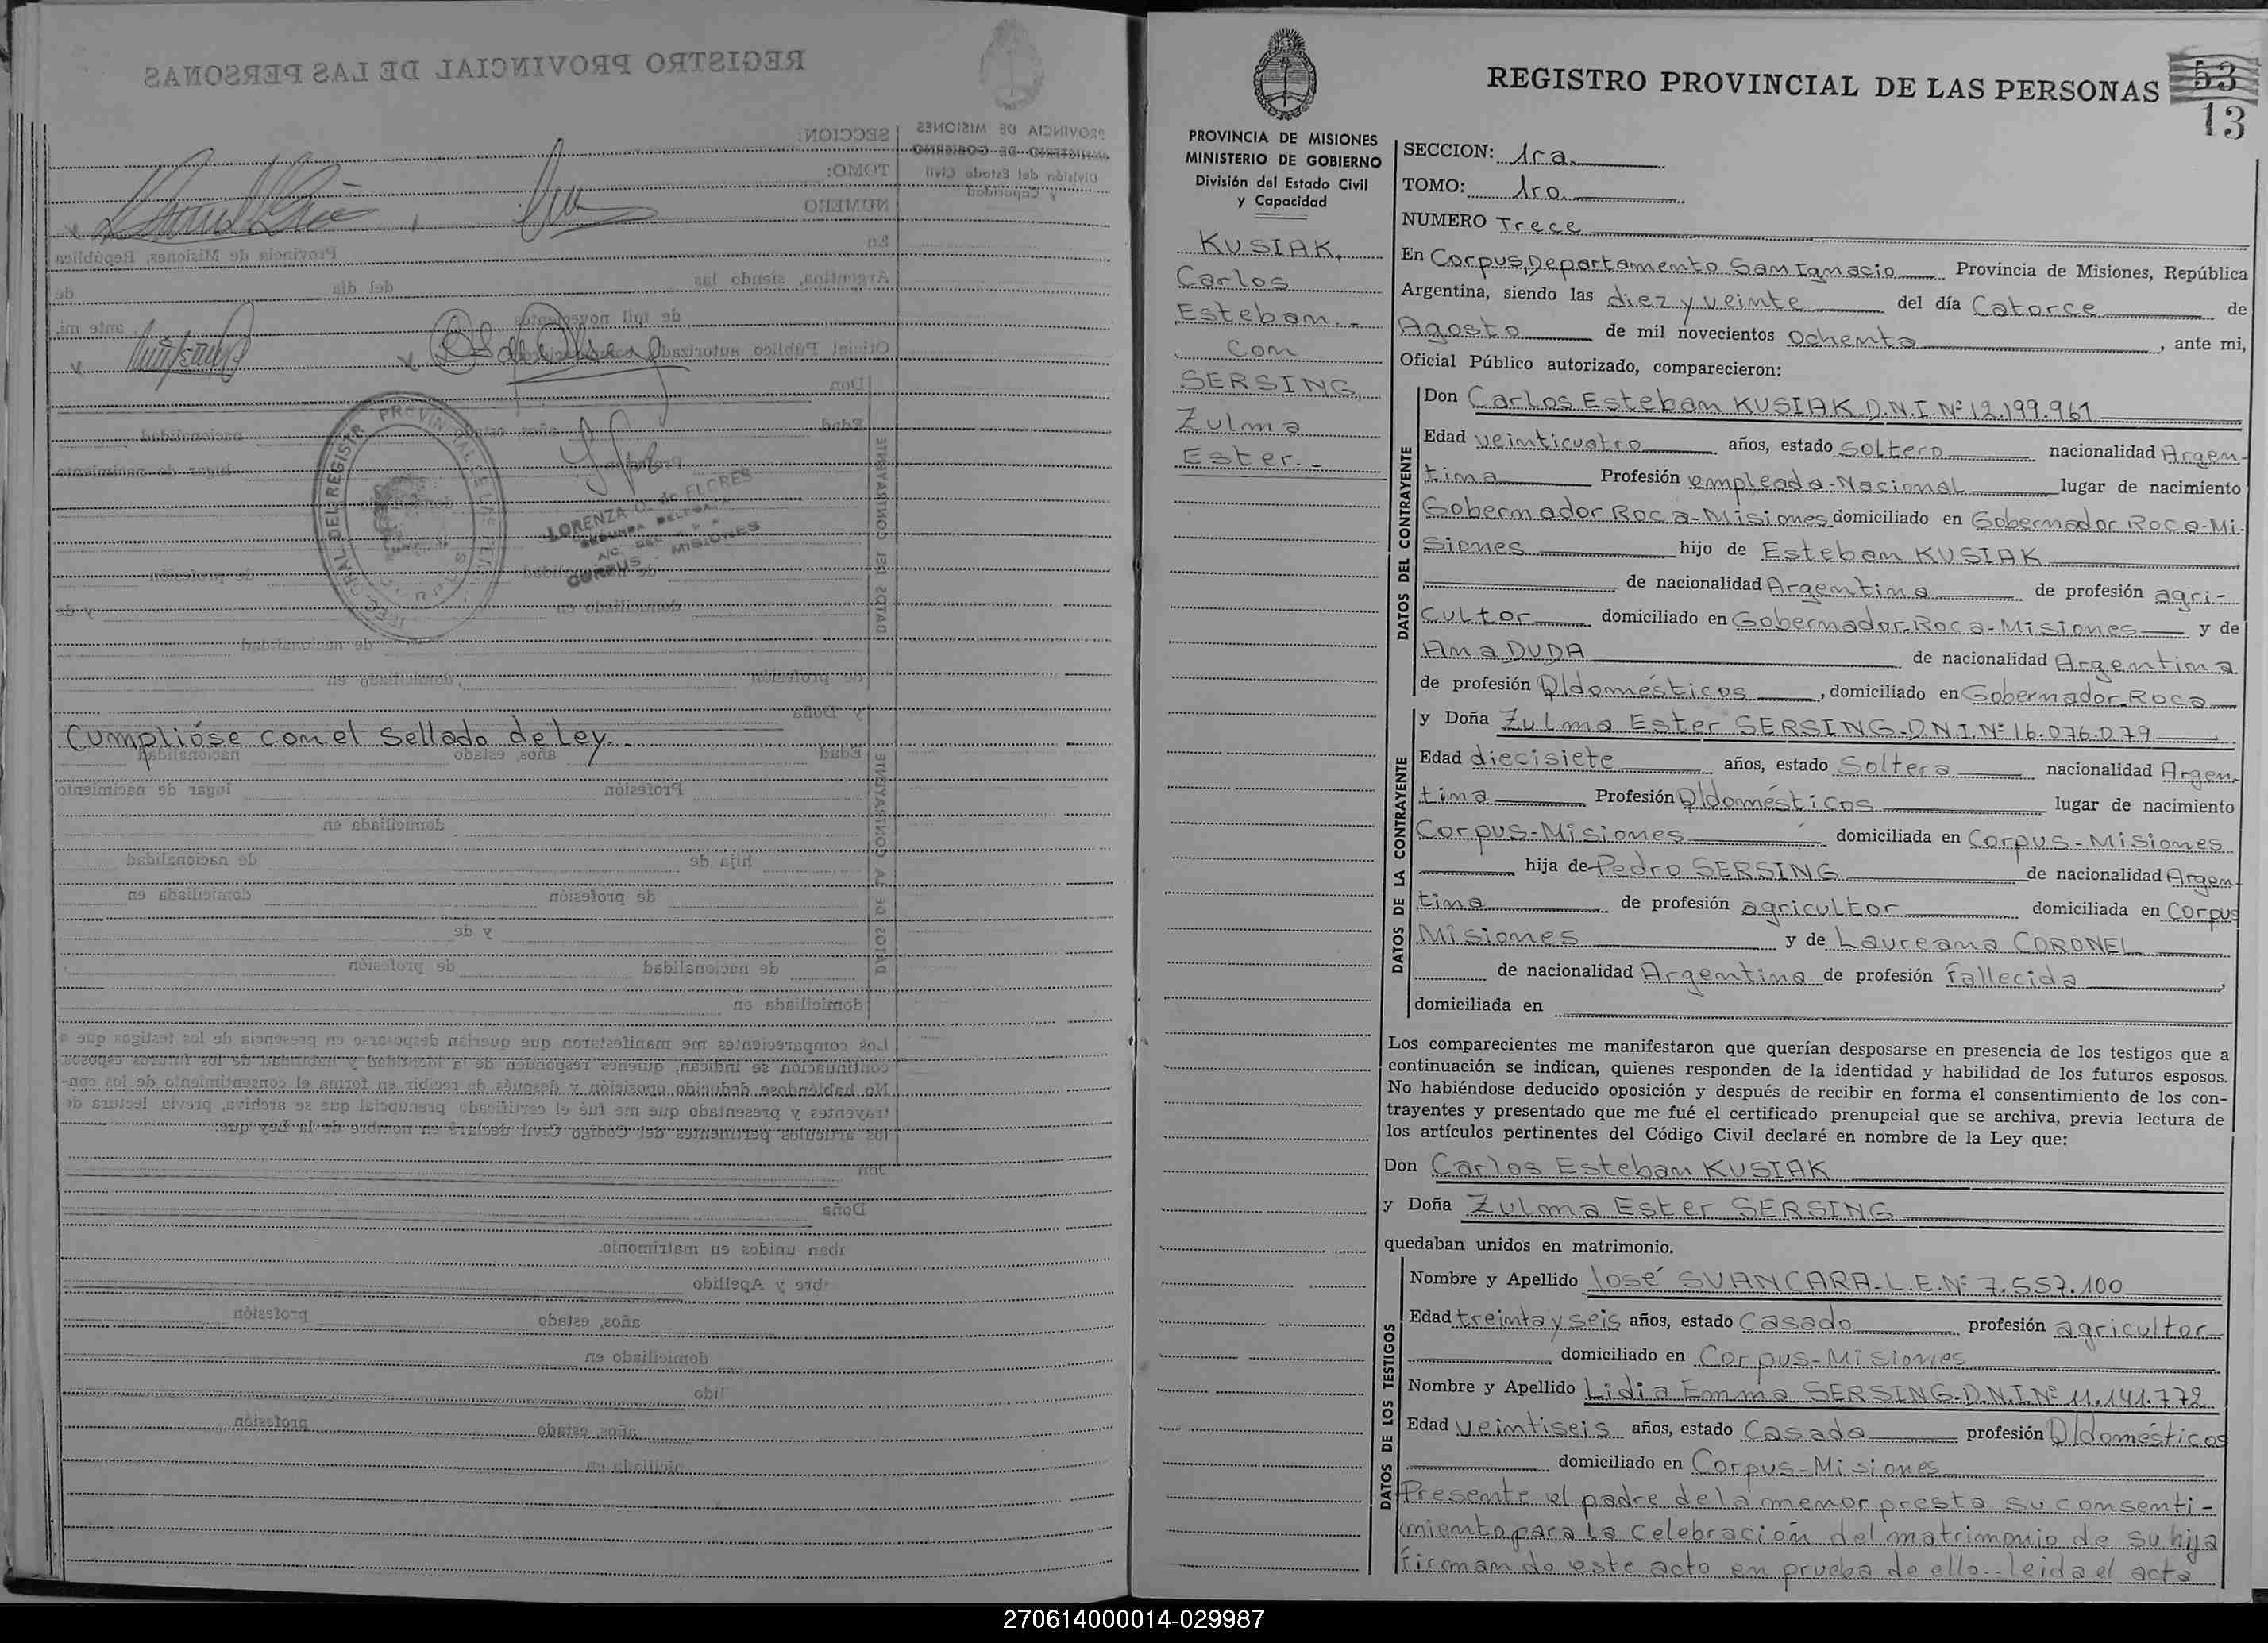 Cumplióse con el Sellado de Ley.-
REGISTRO PROVINCIAL DEL
LORENZA O. de FLORES
SEGUNDA DELEGA
CORPUS - MISIONES
REGISTRO PROVINCIAL DE LAS PERSONAS 53
13
PROVINCIA DE MISIONES
MINISTERIO DE GOBIERNO
División del Estado Civil
y Capacidad
KUSIAK,
Carlos
Esteban.-
con
SERSING,
Zulma
Ester.-
SECCION: 1ra.
TOMO: 1ro.
NUMERO Trece
En Corpus, Departamento San Ignacio Provincia de Misiones, República
Argentina, siendo las diez y veinte del día Catorce de
Agosto de mil novecientos Ochenta, ante mi,
Oficial Público autorizado, comparecieron:
DATOS DEL CONTRAYENTE
Don Carlos Esteban KUSIAK.D.N.I.Nº12.199.961
Edad veinticuatro años, estado Soltero nacionalidad Argen-
tina Profesión empleado-Nacional lugar de nacimiento
Gobernador Roca-Misiones domiciliado en Gobernador Roca-Mi-
siones hijo de Esteban KUSIAK
de nacionalidad Argentina de profesión agri-
cultor domiciliado en Gobernador Roca-Misiones y de
Ana DUDA de nacionalidad Argentina
de profesión Q/domésticos, domiciliado en Gobernador Roca
DATOS DE LA CONTRAYENTE
y Doña Zulma Ester SERSING-D.N.I.Nº16.076.079
Edad diecisiete años, estado Soltera nacionalidad Argen-
tina Profesión Q/domésticos lugar de nacimiento
Corpus-Misiones domiciliada en Corpus-Misiones
hija de Pedro SERSING de nacionalidad Argen-
tina de profesión agricultor domiciliada en Corpus
Misiones y de Laureana CORONEL
de nacionalidad Argentina de profesión fallecida,
domiciliada en
Los comparecientes me manifestaron que querían desposarse en presencia de los testigos que a
continuación se indican, quienes responden de la identidad y habilidad de los futuros esposos.
No habiéndose deducido oposición y después de recibir en forma el consentimiento de los con-
trayentes y presentado que me fué el certificado prenupcial que se archiva, previa lectura de
los artículos pertinentes del Código Civil declaré en nombre de la Ley que:
Don Carlos Esteban KUSIAK
y Doña Zulma Ester SERSING
quedaban unidos en matrimonio.
DATOS DE LOS TESTIGOS
Nombre y Apellido José SVANCARA-L.E.Nº 7.557.100
Edad treinta y seis años, estado Casado profesión agricultor
domiciliado en Corpus-Misiones
Nombre y Apellido Lidia Emma SERSING-D.N.I.Nº 11.141.772
Edad Veintiseis años, estado Casada profesión Q/domésticos
domiciliado en Corpus-Misiones
Presente el padre de la menor presta su consenti-
miento para la celebración del matrimonio de su hija
firmando este acto en prueba de ello.-leida el acta
270614000014-029987